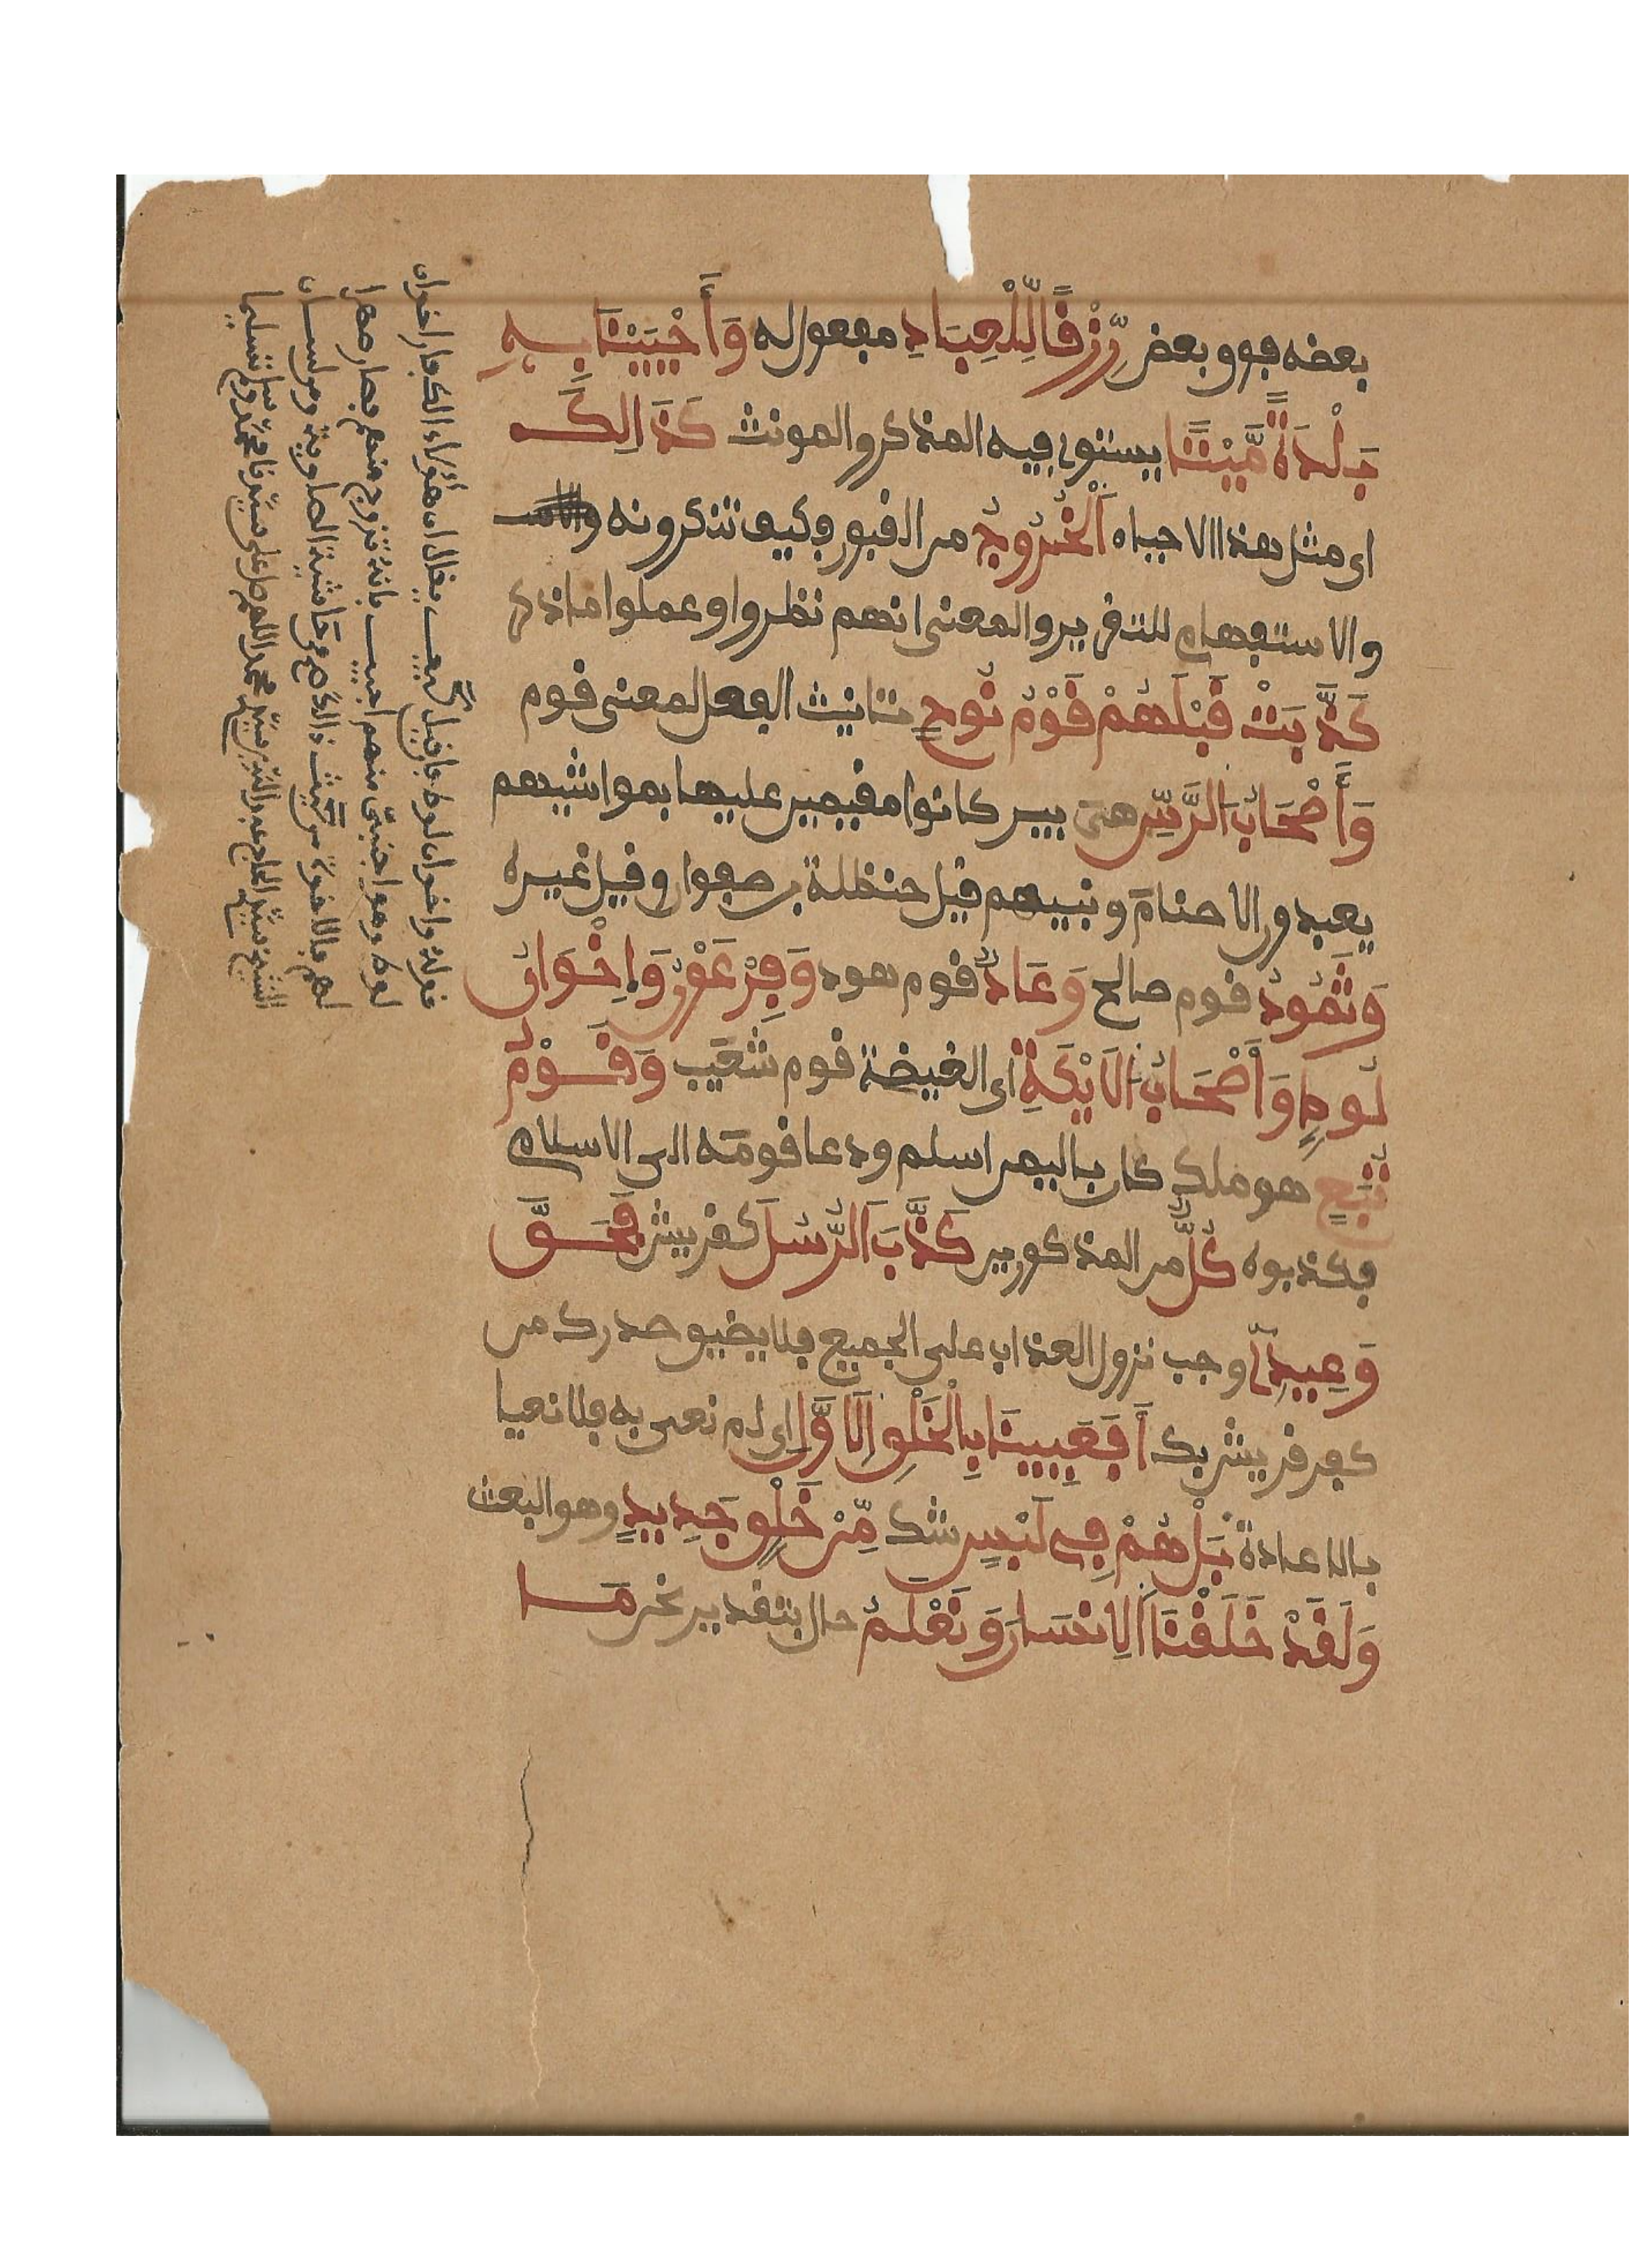 بعضه فوق بعض رِّزْقًا لِّلْعِبَادِ مفعول له وَأَحْيَيْنَا بِهِ
بَلْدَةً مَّيْتًا يستوى فيه المذكر والمونث كَذَالِكَ
اى مثل هذا الاحياء اَلْخُرُوجُ من القبور وكيف تنكرونه
والاستفهام للتقرير والمعنى انهم نظروا وعملوا ما ذكر
كَذَّبَتْ قَبْلَهُمْ قَوْمُ نُوحٍ تانيث الفعل لمعنى قوم
وَأَصْحَابُ اَلرَّسِّ هى بير كانوا مقيمين عليها بمواشيهم
يعبدون الاصنام ونبيهم قيل حنظلة بن صفوان وقيل غيره
وَثَمُودُ قوم صالح وَعَادٌ قوم هود وَفِرْعَوْنُ وَإِخْوَانُ
لُوطٍ وَأَصْحَابُ اَلَايْكَةِ اى الغيضة قوم شعيب وَقَوْمُ
تُبَّعٍ هو ملك كان باليمن اسلم ودعا قومه الى الاسلام
فكذبوه كُلٌّ من المذكورين كَذَّبَ اَلرُّسُلَ كقريش فَحَقَّ
وَعِيدِ وجب نزول العذاب على الجميع فلا يضيق صدرك من
كفر قريش بك أَفَعَيِينَا بِالْخَلْقِ اِلَاوَّلِ اى لم نعى به فلا نعيا
بالاعادة بَلْ هُمْ فِى لَبْسٍ شك مِّنْ خَلْقٍ جَدِيدٍ وهو البعث
وَلَقَدْ خَلَقْنَا اَلِانسَانَ وَنَعْلَمُ حال بتقدير نحن مَا
قوله واخوان لوط فان قيل كيف يقال ان هؤلاء الكفار اخوان
لوط وهو اجنبى منهم اجيب بانه تزوج منهم فصار صهرا
لهم فالاخوة من حيث ذالك صح من حاشية الصاوى